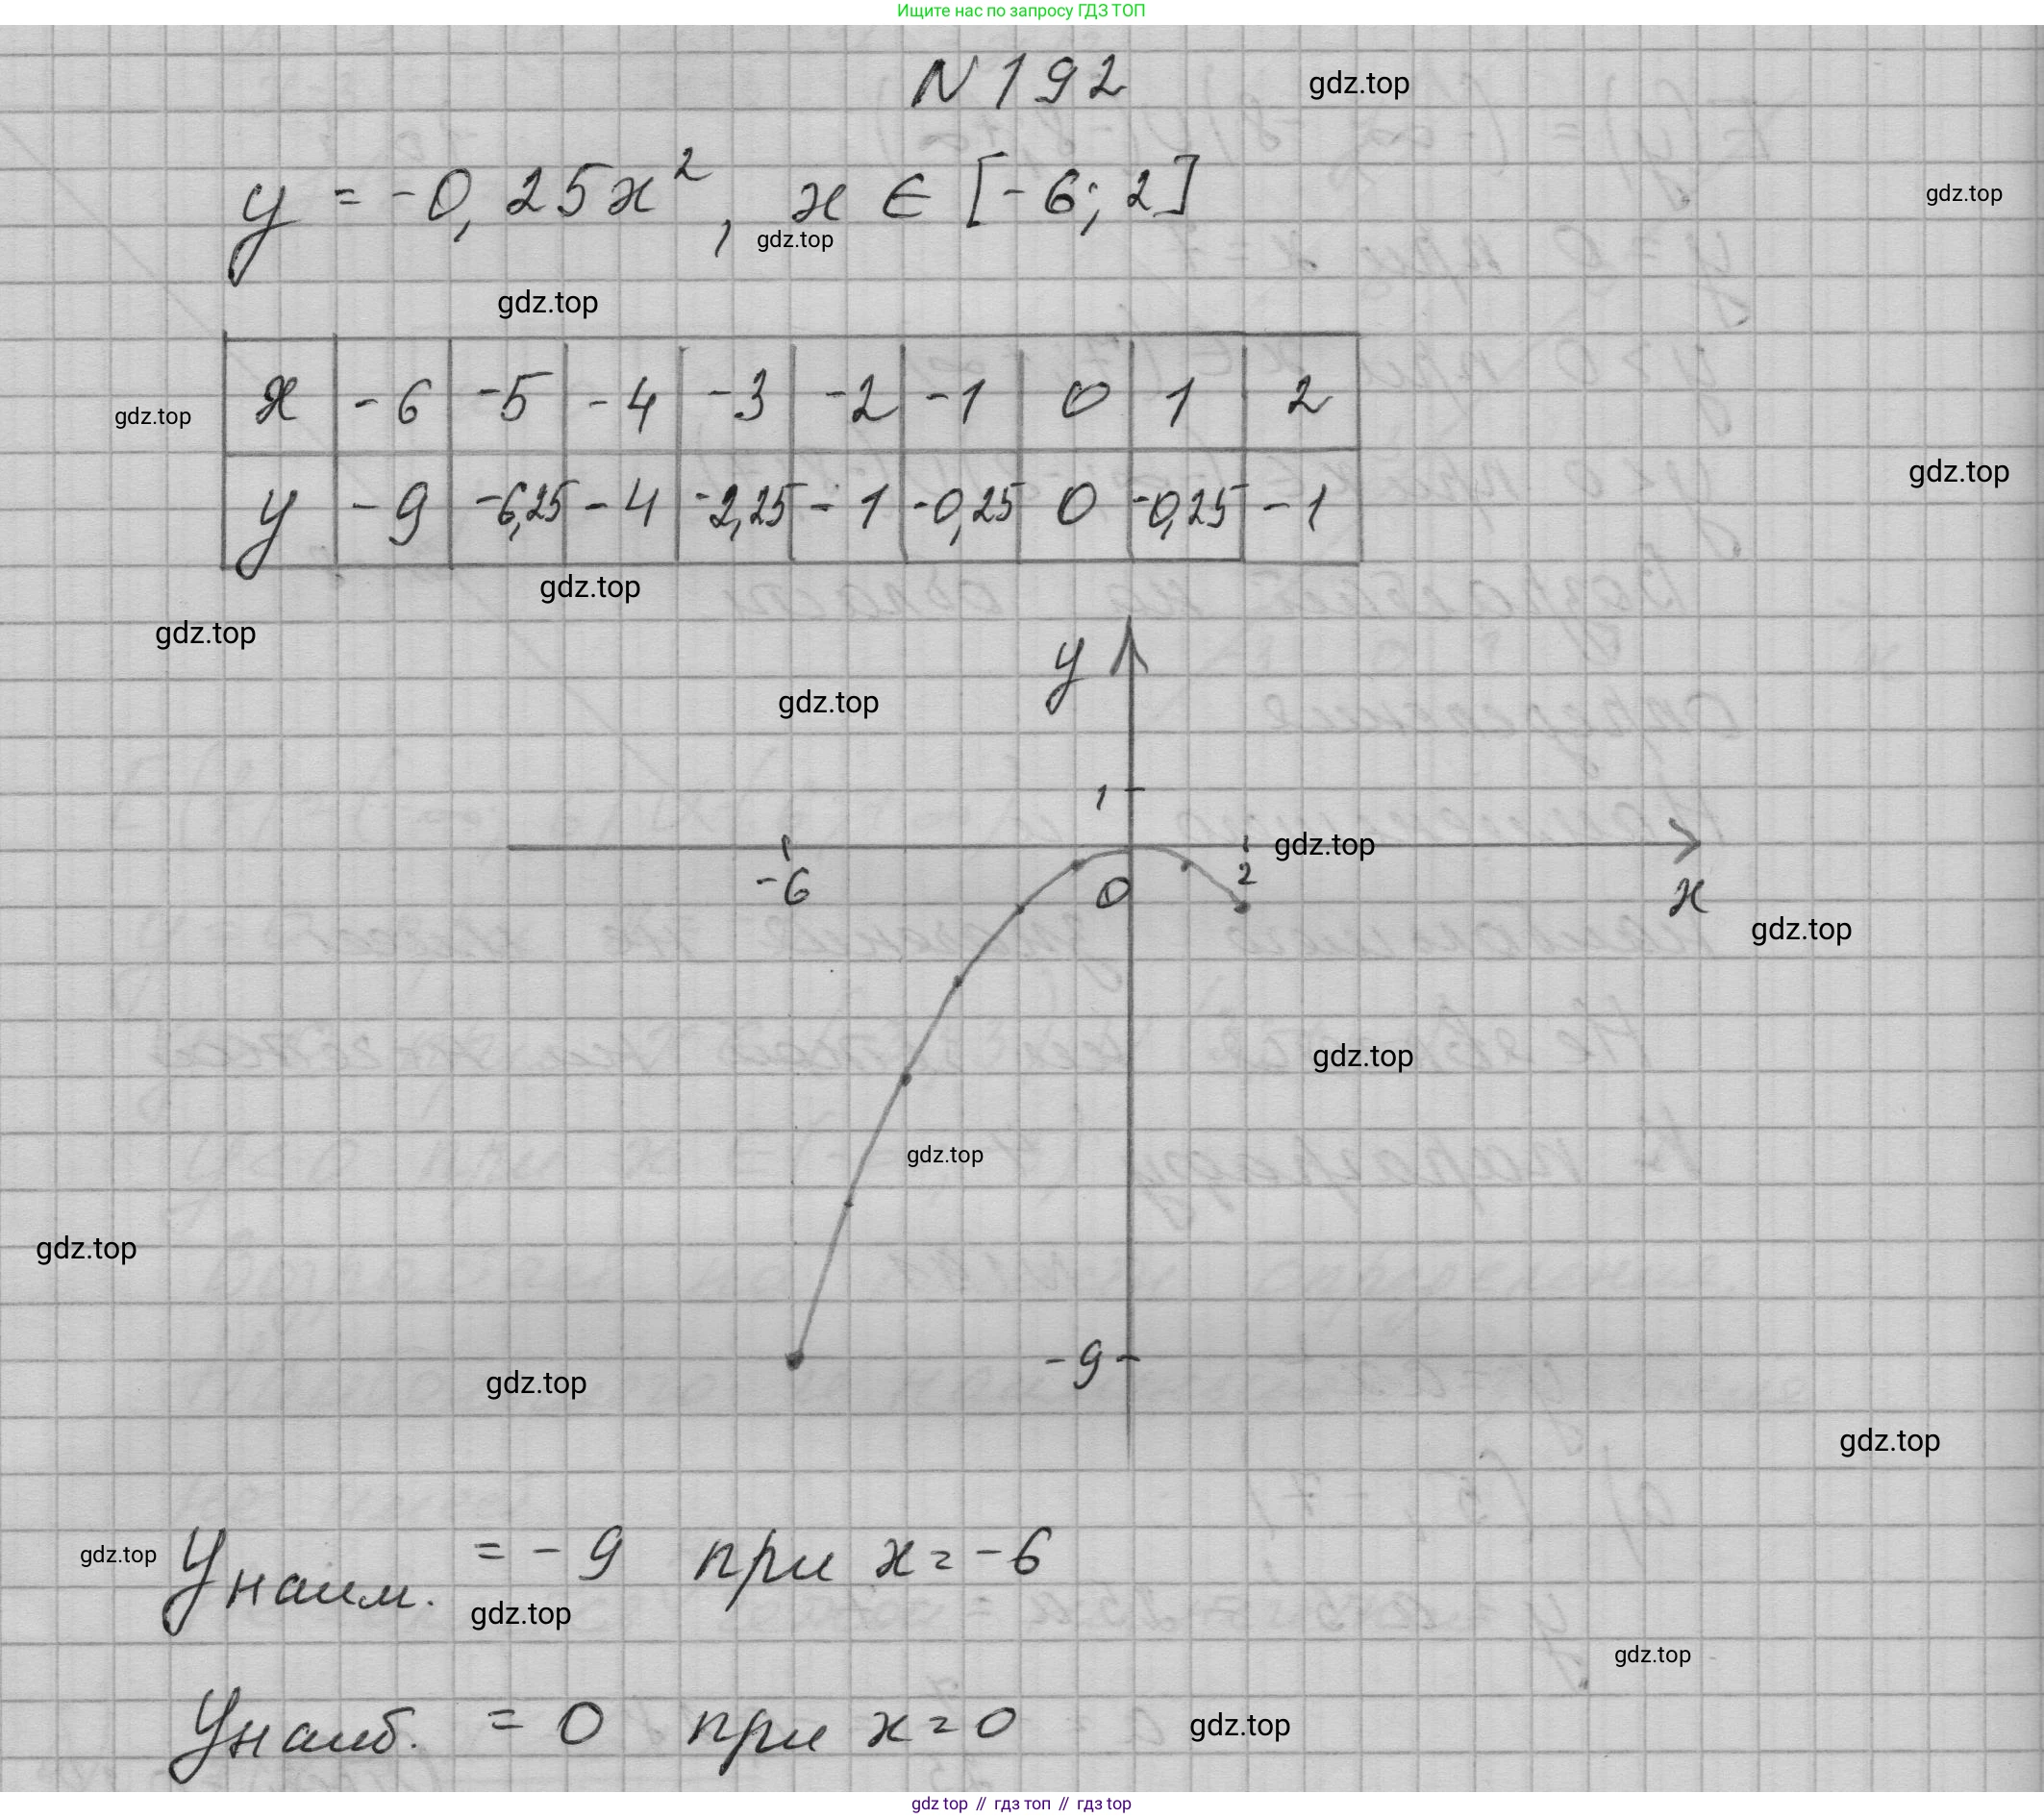 Ищите нас по запросу ГДЗ ТОП
N 192
gdz.top
y = -0,25x², x ∈ [-6; 2]
gdz.top
gdz.top
gdz.top
x -6 -5 -4 -3 -2 -1 0 1 2
gdz.top
gdz.top
y -9 -6,25 -4 -2,25 -1 -0,25 0 -0,25 -1
gdz.top
gdz.top
y
gdz.top
1
gdz.top
-6 0 2 x
gdz.top
gdz.top
gdz.top
gdz.top
-9
gdz.top
gdz.top
yнаим. = -9 при x = -6
gdz.top
gdz.top
gdz.top
yнаиб. = 0 при x = 0
gdz.top
gdz top // гдз топ // гдз top